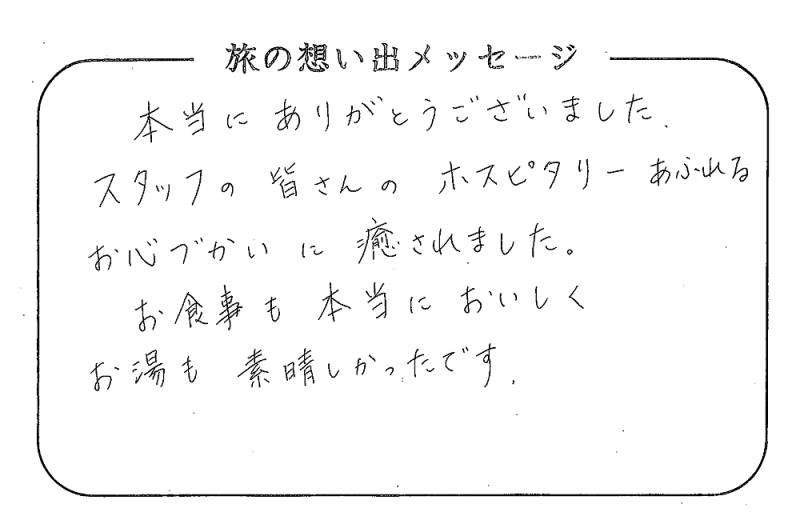 旅の想い出メッセージ
本当に ありがとうございました.
スタッフの 皆さんの ホスピタリー あふれる
お心づかい に 癒されました。
お食事も 本当に おいしく
お湯も 素晴しかったです.